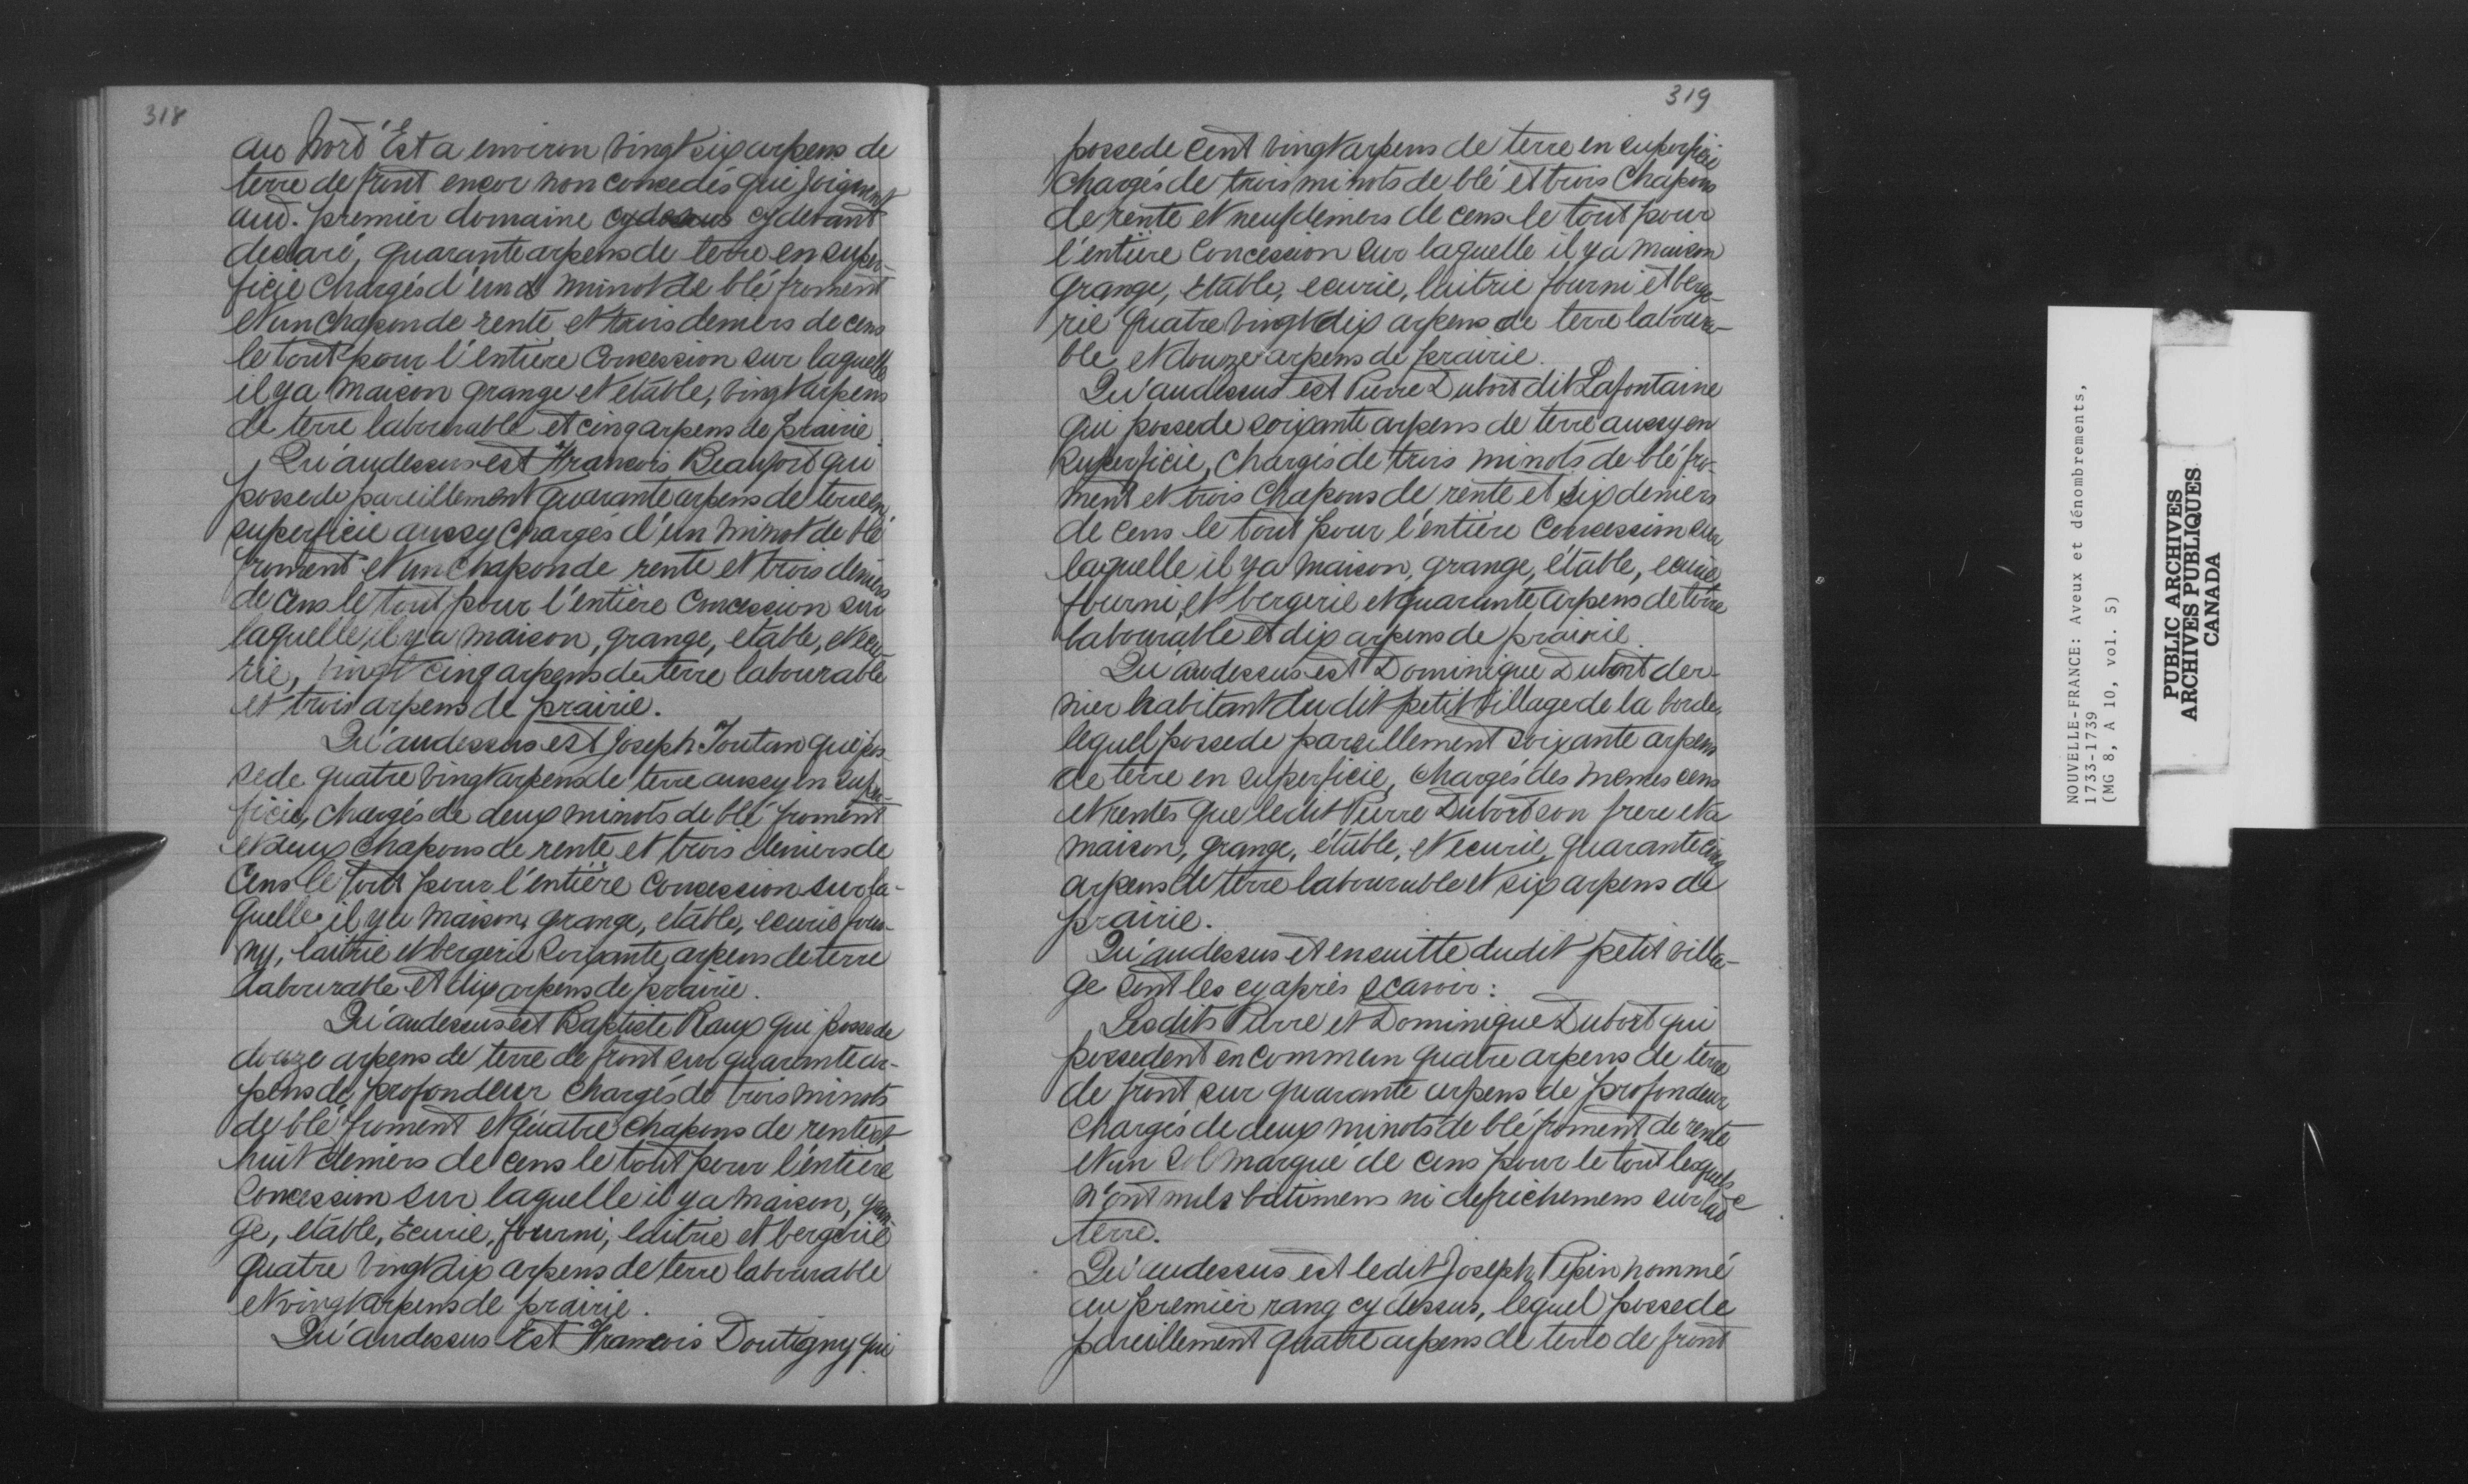 318
au Nord Est a environ vingt six arpens de
terre de front encor non concedés qui joignent
aud. premier domaine cydessus cy devant
declaré, quarante arpens de terre en super-
ficie chargés d'un minot de blé froment
et un chapon de rente et trois deniers de cens
le tout pour l'entiere Concession sur laquelle
il y a maison grange et etable, vingt arpens
de terre labourable et cinq arpens de prairie.
Qu'audessus est Francois Beaufort qui
possede pareillement quarante arpens de terre en
superficie aussy chargés d'un minot de blé
froment et un chapon de rente et trois deniers
de cens le tout pour l'entière Concession sur
laquelle il y a maison, grange, etable, et ecu-
rie, vingt cinq arpens de terre labourable
et trois arpens de prairie.
Qu'audessus est Joseph Toutan qui pos-
sede quatre vingt arpens de terre aussy en super-
ficie, chargés de deux minots de blé froment
et deux chapons de rente et trois deniers de
Cens le tout pour l'entière Concession sur la-
quelle il y a maison, grange, etable, ecurie four-
ny, laitrie et bergerie soixante arpens de terre
labourable et dix arpens de prairie.
Qu'audessus est Baptiste Raux qui possede
douze arpens de terre de front sur quarante ar-
pens de profondeur chargés de trois minots
de blé froment et quatre chapons de rente et
huit deniers de cens le tout pour l'entiere
Concession sur laquelle il y a maison, gran-
ge, etable, Ecurie, fourni, laitrie et bergerie
quatre vingt dix arpens de terre labourable
et vingt arpens de prairie.
Qu'audessus Est Francois Doutigny qui
319
possede cent vingt arpens de terre en superficie
chargés de trois minots de blé et trois Chapons
de rente et neuf deniers de cens le tout pour
l'entière Concession sur laquelle il y a maison
grange, Etable, ecurie, laitrie fourni et berge-
rie quatre vingt dix arpens de terre laboura-
ble et douze arpens de prairie.
Qu'audessus est Pierre Dubort dit Lafontaine
qui possede soixante arpens de terre aussy en
Superficie, chargés de trois minots de blé fro-
ment et trois Chapons de rente et six deniers
de cens le tout pour l'entière Concession sur
laquelle il y a maison, grange, étable, ecurie,
fourni, et bergerie et quarante arpens de terre
labourable et dix arpens de prairie.
Qu'audessus est Dominique Dubort der-
nier habitant dudit petit village de la borde,
lequel possede pareillement soixante arpens
de terre en superficie, chargés des memes cens
et rentes que ledit Pierre Dubort son frere et a
maison, grange, étable, et ecurie, quarante cinq
arpens de terre labourable et six arpens de
prairie.
Qu'audessus et ensuitte dudit petit villa-
ge sont les cy après scavoir :
Lesdits Pierre et Dominique Dubort qui
possedent en commun quatre arpens de terre
de front sur quarante arpens de profondeur
chargés de deux minots de blé froment de rente
et un sol marqué de cens pour le tout lesquels
n'ont nuls batimens ni defrichemens sur lade
terre.
Qu'audessus est ledit Joseph Pepin nommé
au premier rang cy dessus, lequel possede
pareillement quatre arpens de terre de front
NOUVELLE-FRANCE: Aveux et dénombrements,
1733-1739
(MG 8, A 10, vol. 5)
PUBLIC ARCHIVES
ARCHIVES PUBLIQUES
CANADA